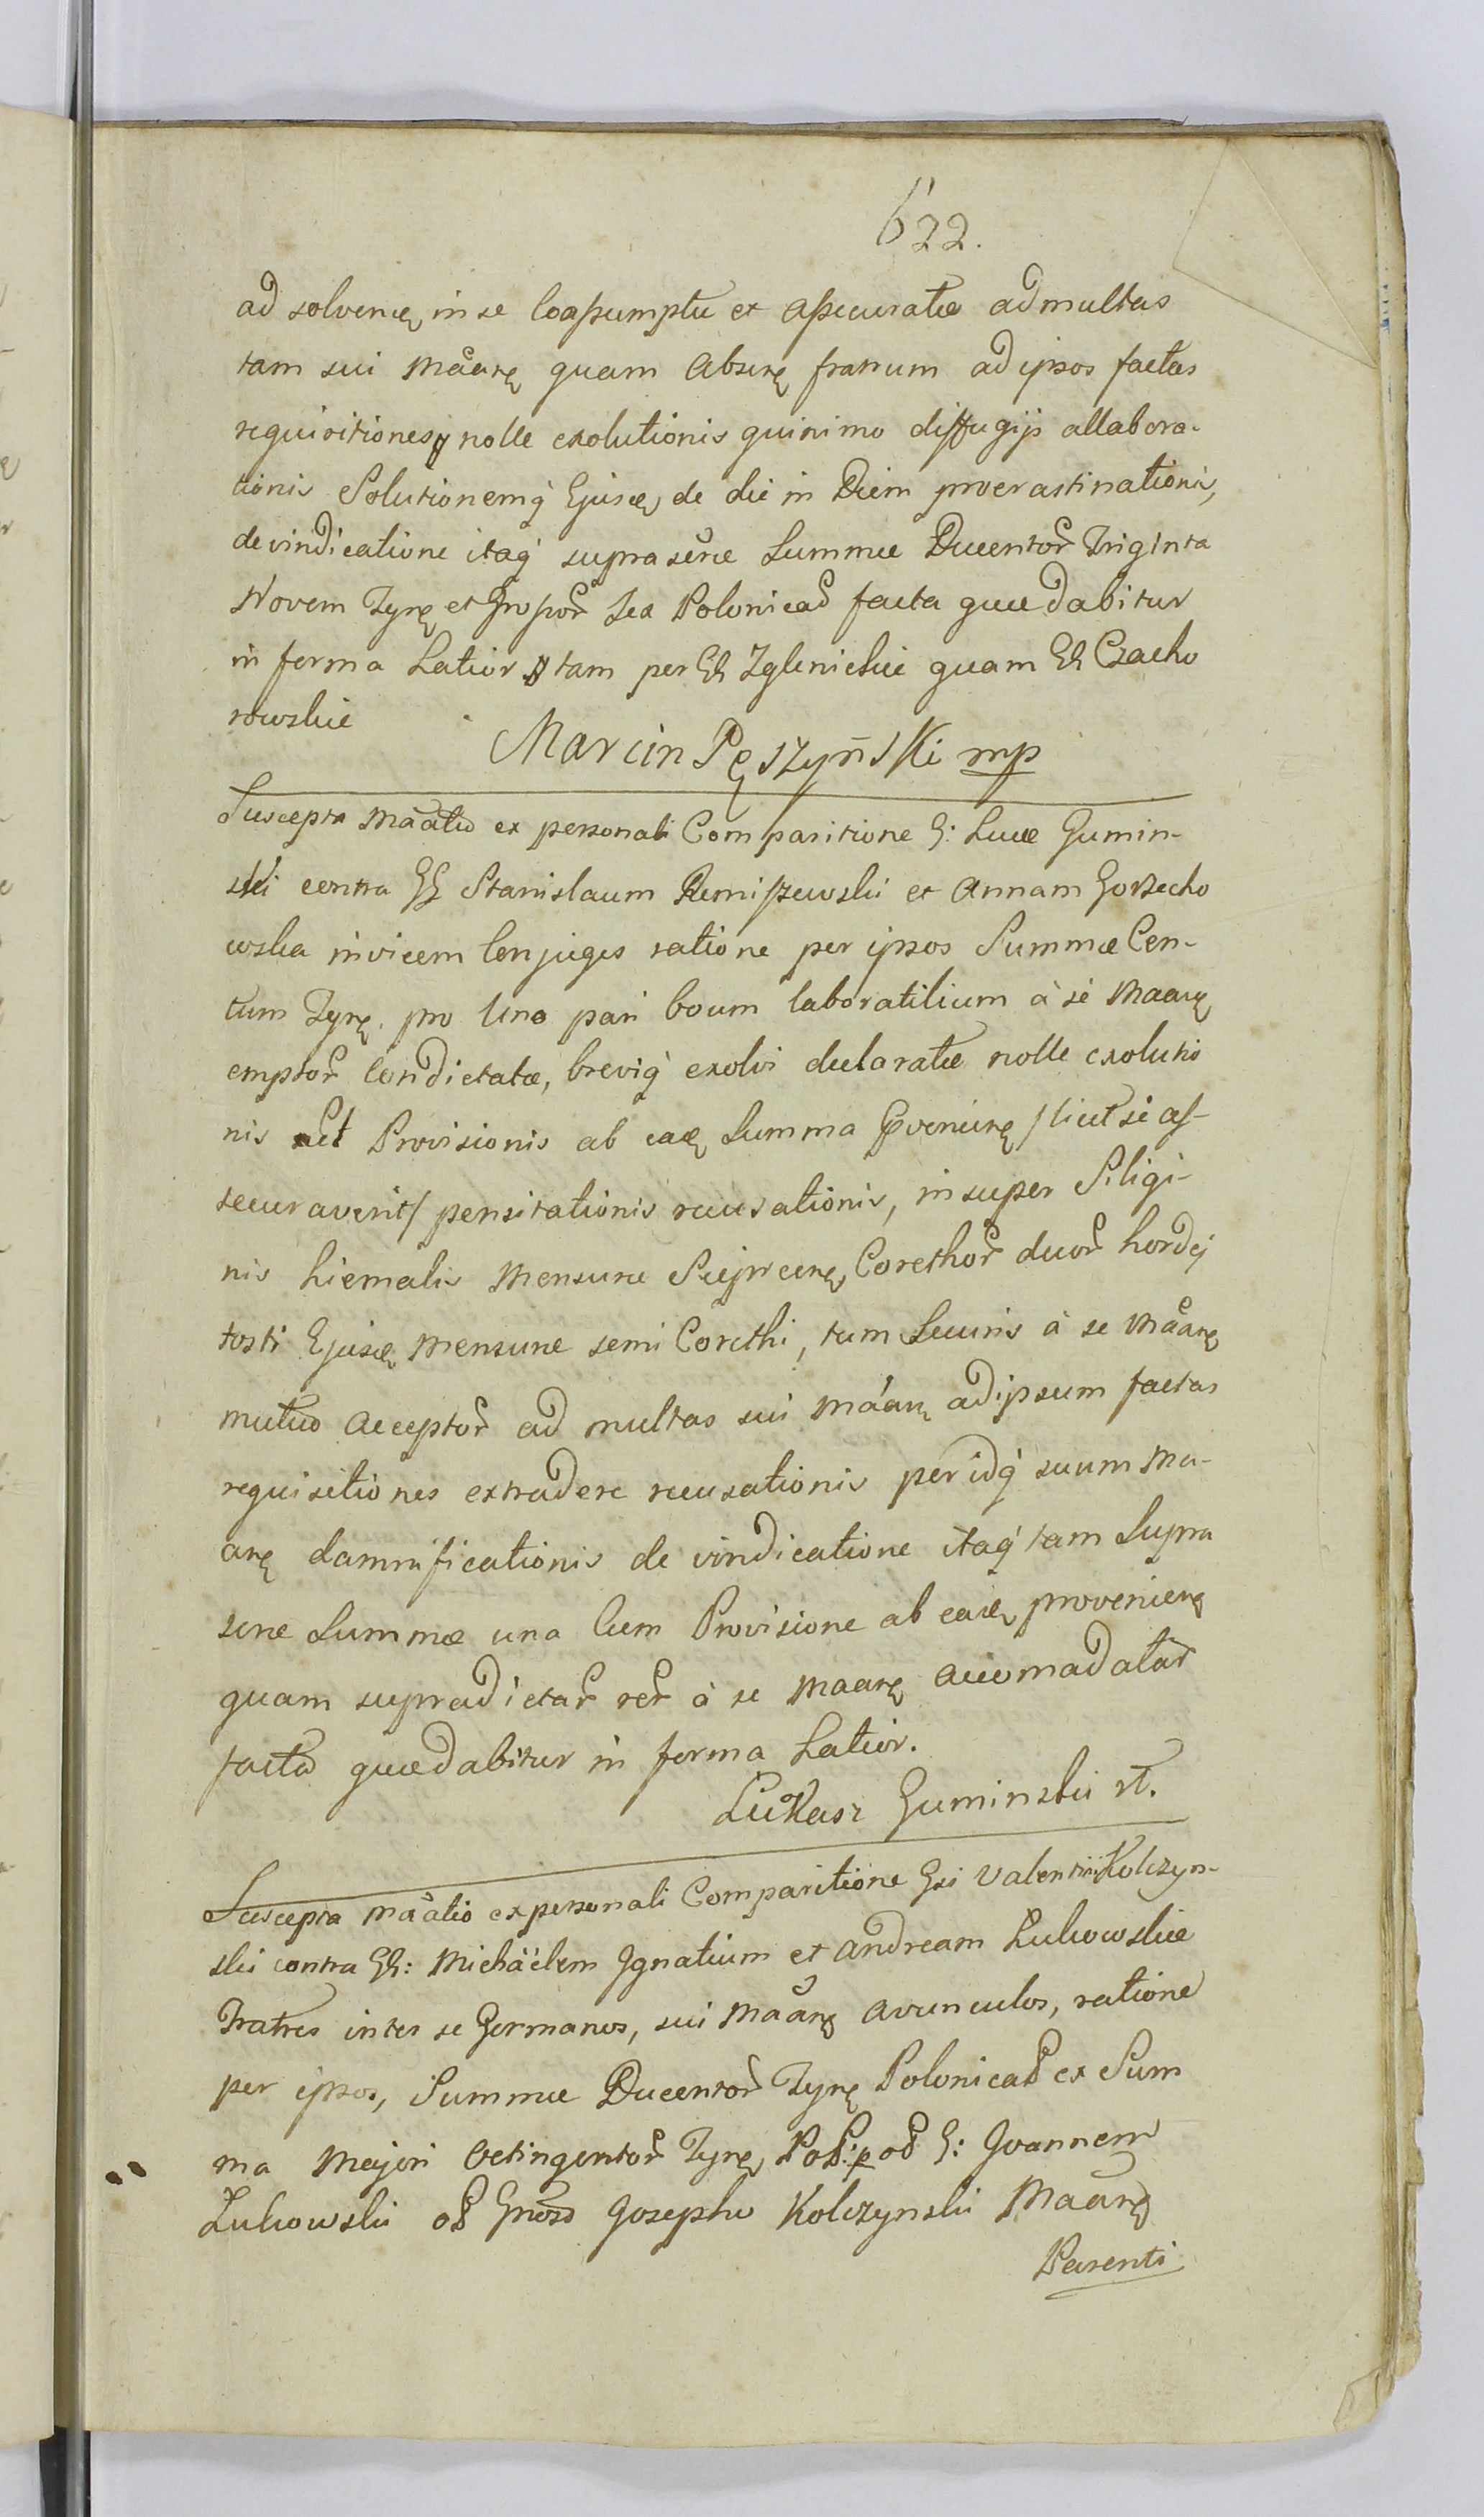 622.
ad solvenꝗ in se Coassumptæ et assecuratæ ad multas
tam sui Maanꝗ quam Absenꝗ fratrum ad ipsos factas
requisitiones nolle exolutionis quinimo diffugijs allabora-
tionis Solutionemq́ Ejusꝗ de die in Diem procrastinationis,
de vindicatione itaq́ suprascrie Summæ Ducentor Triginta
Novem Tynꝗ et Grossor Sex Polonical facta quæ dabitur
in forma Latior tam per GG Zglenickie quam GG Czacho
rowskie
Marcin Pęszynski mp
Suscepta Maatio ex personali Comparitione G: Lucæ Gumin-
ski contra GG Stanislaum Remiszewski et Annam Gorzecho
wska invicem Conjuges ratione per ipsos Summæ Cen-
tum Tynꝗ. pro Uno pari boum laboratilium à se Maanꝗ
emptor Condictatæ, breviq́ exolvi declaratæ nolle exolutio
nis Provisionis ab eaꝗ Summa Proveninꝗ /sicut se as-
securaverit/ pensitationis recusationis, insuper Siligi-
nis hiemalis Mensuræ Corethor duor hordej
tosti Ejusꝗ Mensuræ semi Corethi, tum Securis à se Maanꝗ
mutuo acceptor ad multas sui Maanꝗ ad ipsum factas
requisitiones extradere recusationis per idq́ suum Ma-
anꝗ damnificationis de vindicatione itaq́ tam Supra
scrie Summæ una Cum Provisione ab eaꝗ provenienꝗ
quam supradictar rer à se Maanꝗ accomadatar
facta quæ dabitur in forma Latior.
Łukasz Guminski
Suscepta Maatio ex personali Comparitione Gsi Valentini Kolczyn-
ski contra GG: Michäelem Ignatium et Andream Lukowskie
Fratres inter se Germanos, sui Maanꝗ avunculos, ratione
per ipsos, Summæ Ducentor Tynꝗ Polonical ex Sum
ma Majori Octingentor Tynꝗ Pol: G: Joannem
Lukowski olim Groso Josepho Kolczynski Maanꝗ
Parenti